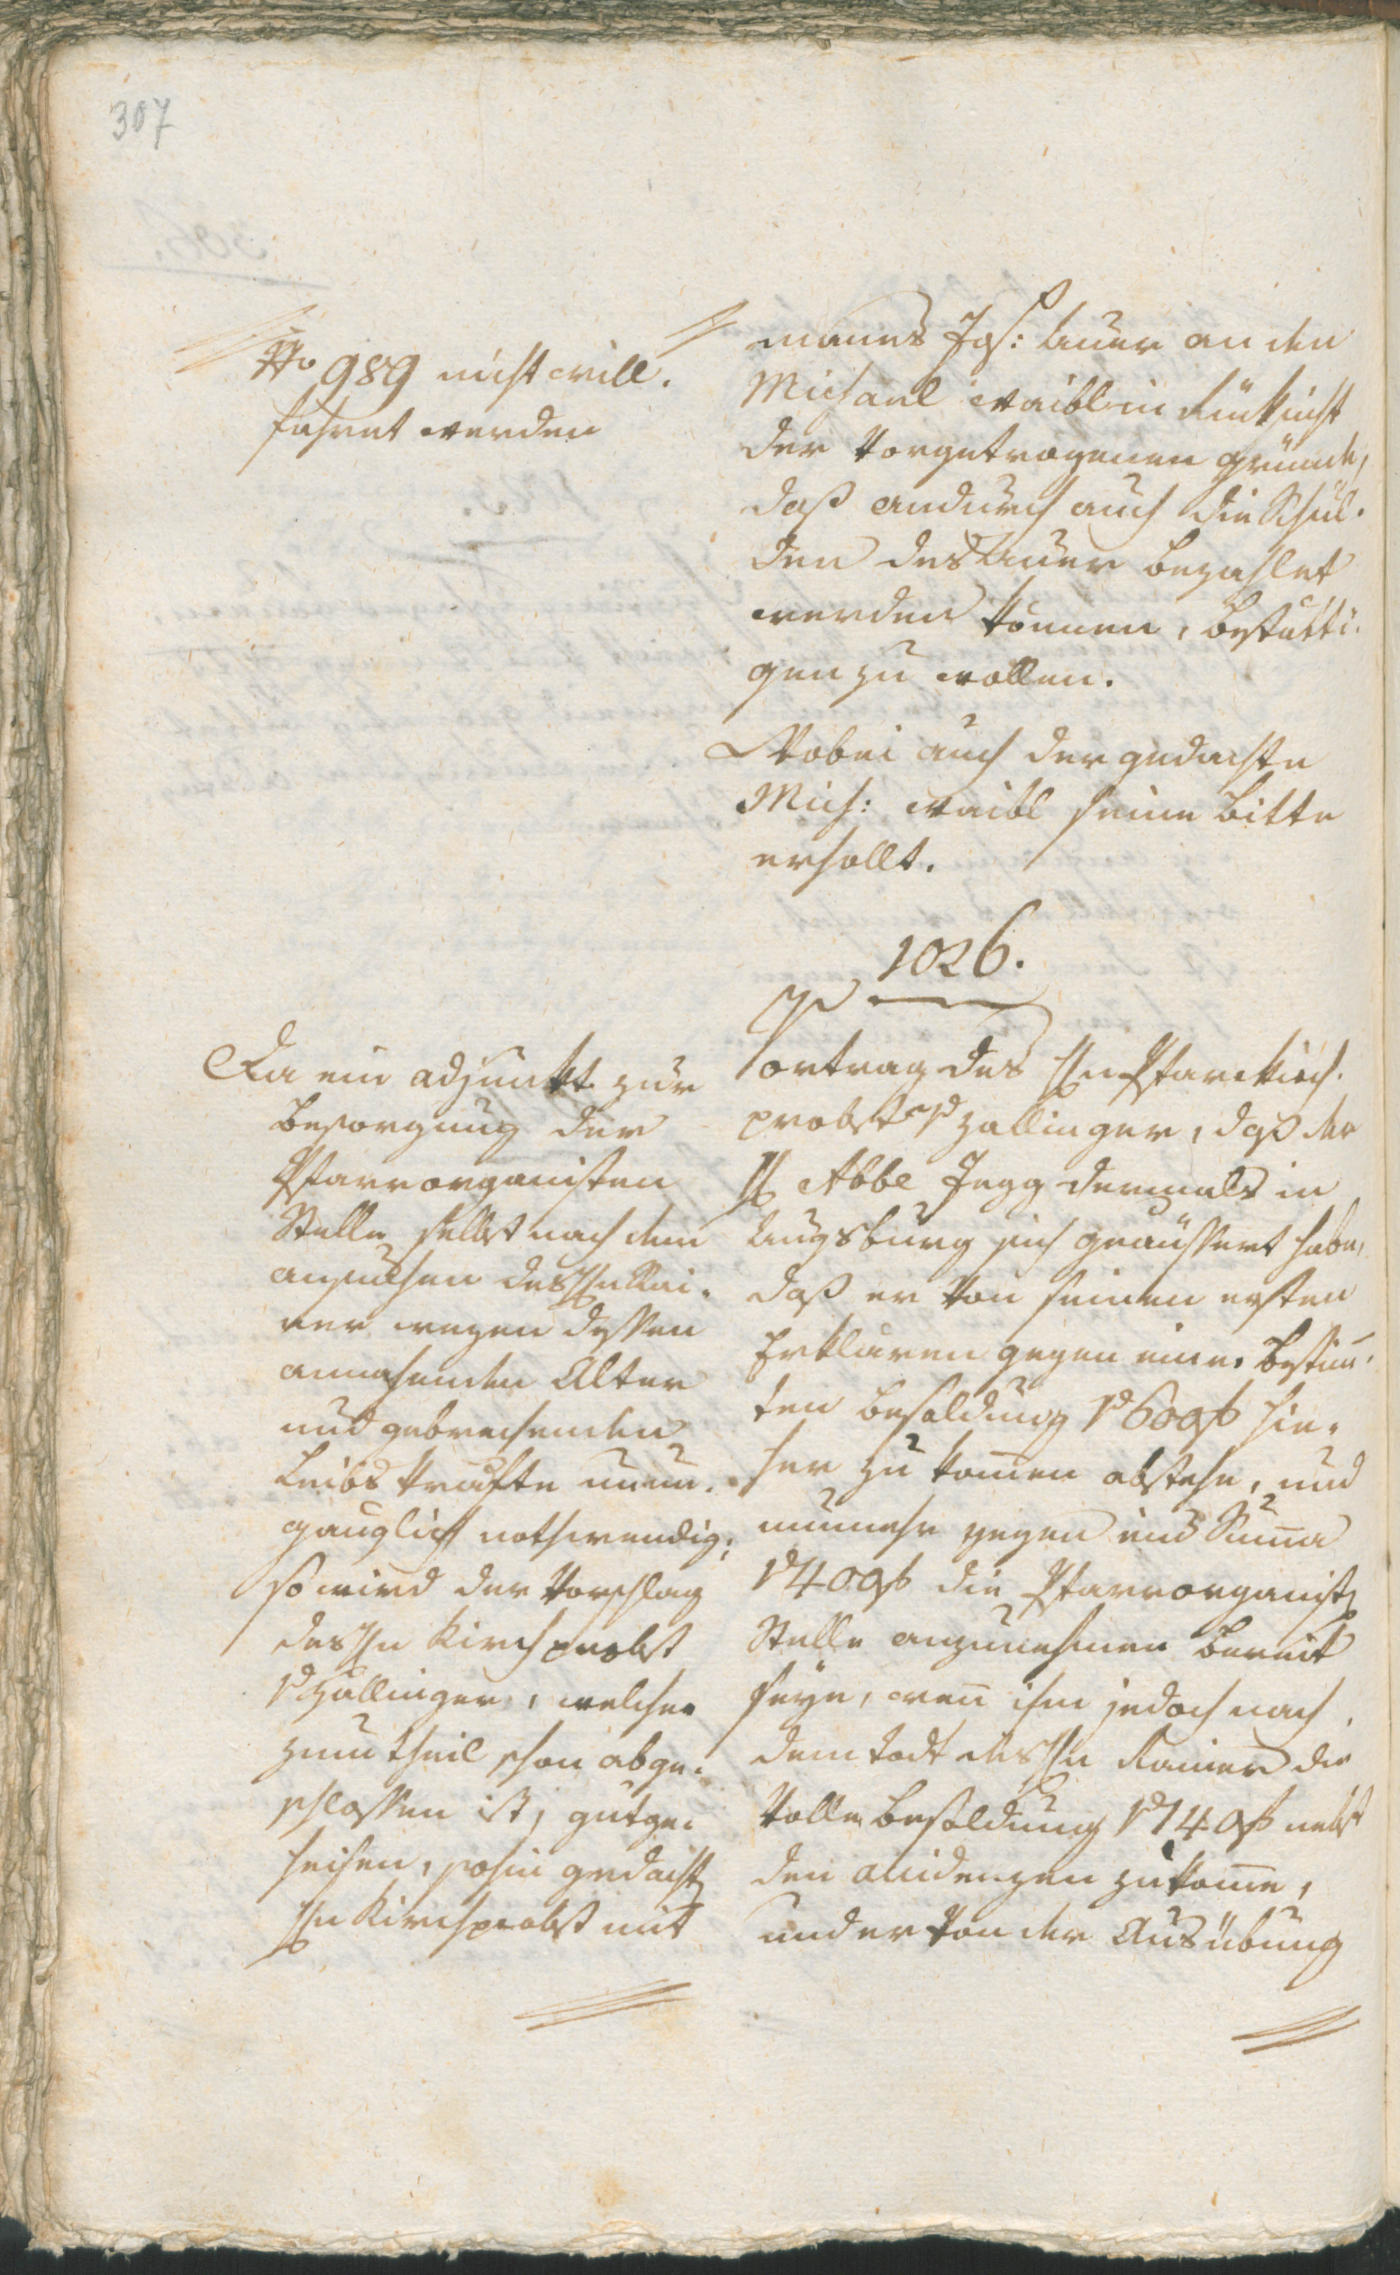 307
No 989 nicht will.
fahret werden
manns Jos: Auer an den
Michael Waibl in Rüksicht
der Vorgetragenen gründe,
daß andurch auch die Schul-
den des Auer bezahlet
werden können, bestätti-
gen zu wollen.
Wobei auch der gedachte
Mich: Waibl seine Bitte
erhollt.
1026.
Da ein adjunkt zur
besorgung der
Pfarrorganisten
Stelle selbst nach dem
ansuchen des Hn Rai-
ner wegen dessen
annahenden Alter
und gebrechenden
Leibs Kräfte unum-
gänglich nothwendig;
so wird der Vorschlag
des Hn Kirchprobst
v Zallinger, welcher
zum theil schon abge-
schlossen ist, gutge-
heisen, sohin gedacht
Hn Kirchprobst mit
Vortrag des Hn Pfarrkirch-
probst v Zallinger, daß der
H Abbe Jegg dermals in
Augsburg sich geäussert habe,
daß er Von seinen ersten
Erklären gegen einer bestim̄-
ten besoldung v 600 f hie-
her zu kom̄en abstehe, und
nunmehr gegen eine Sum̄a
v 400 f die Pfarrorganist
Stelle anzunehmen bereit
seye, wen̄ ihm jedoch nach
dem todt des Hn Rainer die
Volle besoldung v 740 f nebst
den accidenzen zukom̄e,
und er Von der Ausübung